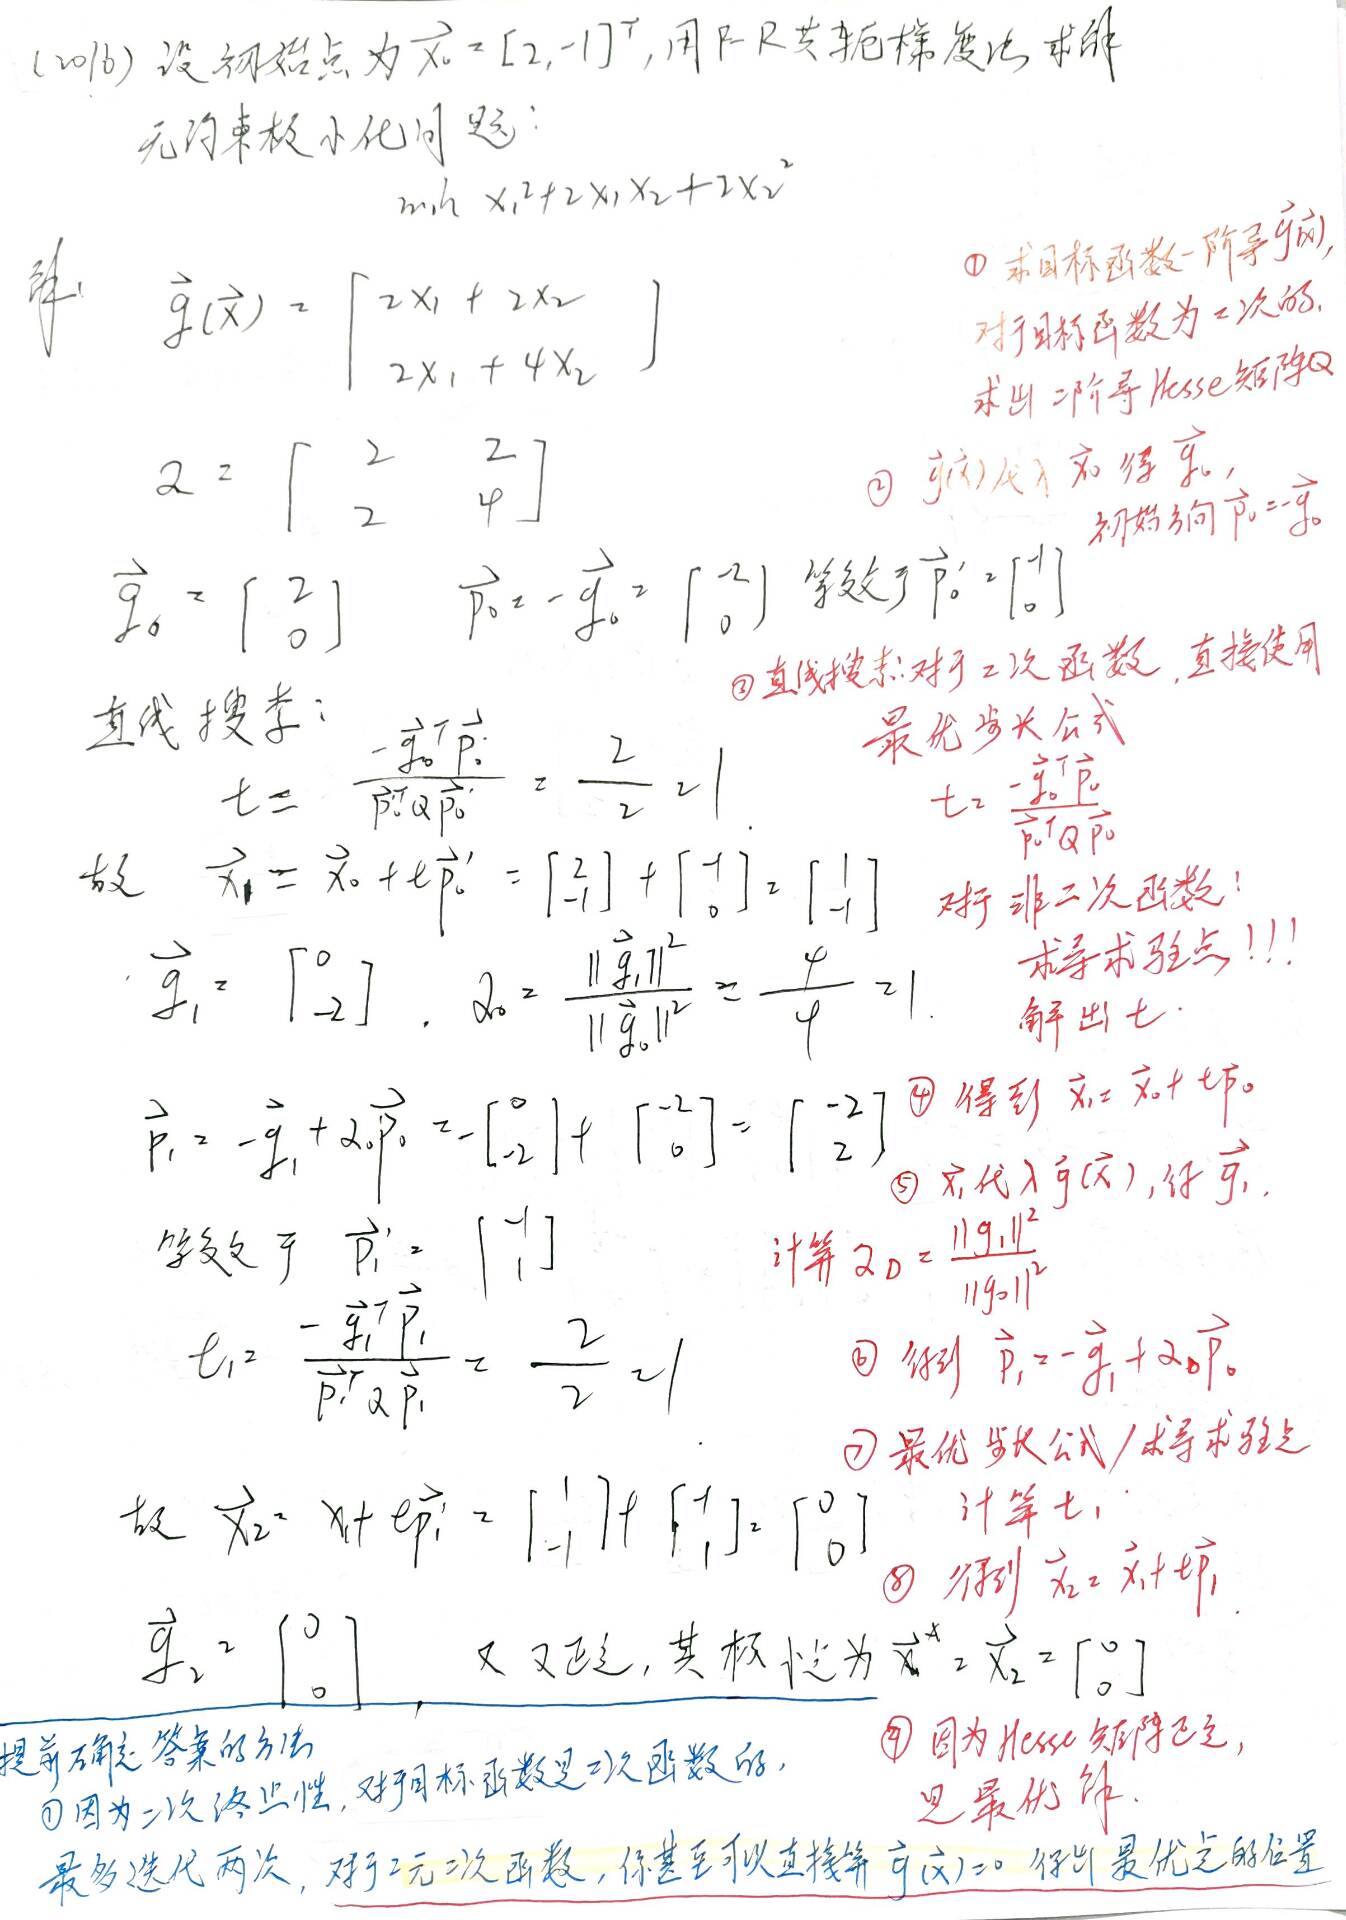 (2016) 设初始点为 x⃗₀ = [2,-1]ᵀ, 用F-R共轭梯度法求解
无约束极小化问题:
min x₁²+2x₁x₂+2x₂²
解:
g⃗(x⃗) = [2x₁ + 2x₂
2x₁ + 4x₂]
Q = [2 2
2 4]
g⃗₀ = [2
0] p⃗₀ = -g⃗₀ = [-2
0] 等效于 p⃗₀' = [-1
0]
直线搜索:
t = -g⃗₀ᵀp⃗₀' / p⃗₀'ᵀQp⃗₀' = 2/2 = 1.
故 x⃗₁ = x⃗₀ + tp⃗₀' = [2
-1] + [-1
0] = [1
-1]
g⃗₁ = [0
-2]. α₀ = ||g⃗₁||² / ||g⃗₀||² = 4/4 = 1.
p⃗₁ = -g⃗₁ + α₀p⃗₀ = -[0
-2] + [-2
0] = [-2
2]
等效于 p⃗₁' = [-1
1]
t₁ = -g⃗₁ᵀp⃗₁ / p⃗₁ᵀQp⃗₁ = 2/2 = 1
故 x⃗₂ = x₁ + tp⃗₁' = [1
-1] + [-1
1] = [0
0]
g⃗₂ = [0
0], 又 正定, 其极 为 x⃗* = x⃗₂ = [0
0]
① 求目标函数一阶导g⃗(x⃗),
对于目标函数为二次的,
求出二阶导Hesse矩阵Q
② g⃗(x⃗)代入 x⃗₀ 得 g⃗₀,
初始方向 p⃗₀ = -g⃗₀
③ 直线搜索: 对于二次函数, 直接使用
最优步长公式
t = -g⃗₀ᵀp⃗₀ / p⃗₀ᵀQp⃗₀
对于非二次函数:
求导求驻点!!!
解出 t.
④ 得到 x⃗₁ = x⃗₀ + tp⃗₀
⑤ x⃗₁代入g⃗(x⃗), 得 g⃗₁.
计算 α₀ = ||g₁||² / ||g₀||²
⑥ 得到 p⃗₁ = -g⃗₁ + α₀p⃗₀
⑦ 最优步长公式/求导求驻点
计算 t₁.
⑧ 得到 x⃗₂ = x⃗₁ + tp⃗₁.
⑨ 因为Hesse矩阵正定,
是最优解.
提前确定答案的方法
① 因为二次终止性, 对于目标函数是二次函数的,
最多迭代两次, 对于二元二次函数, 你甚至可以直接算 g⃗(x⃗)=0 得出最优点的位置